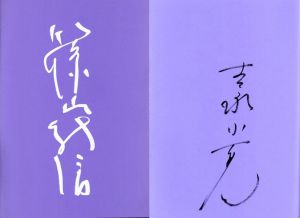 篠山紀信
吉永小百合